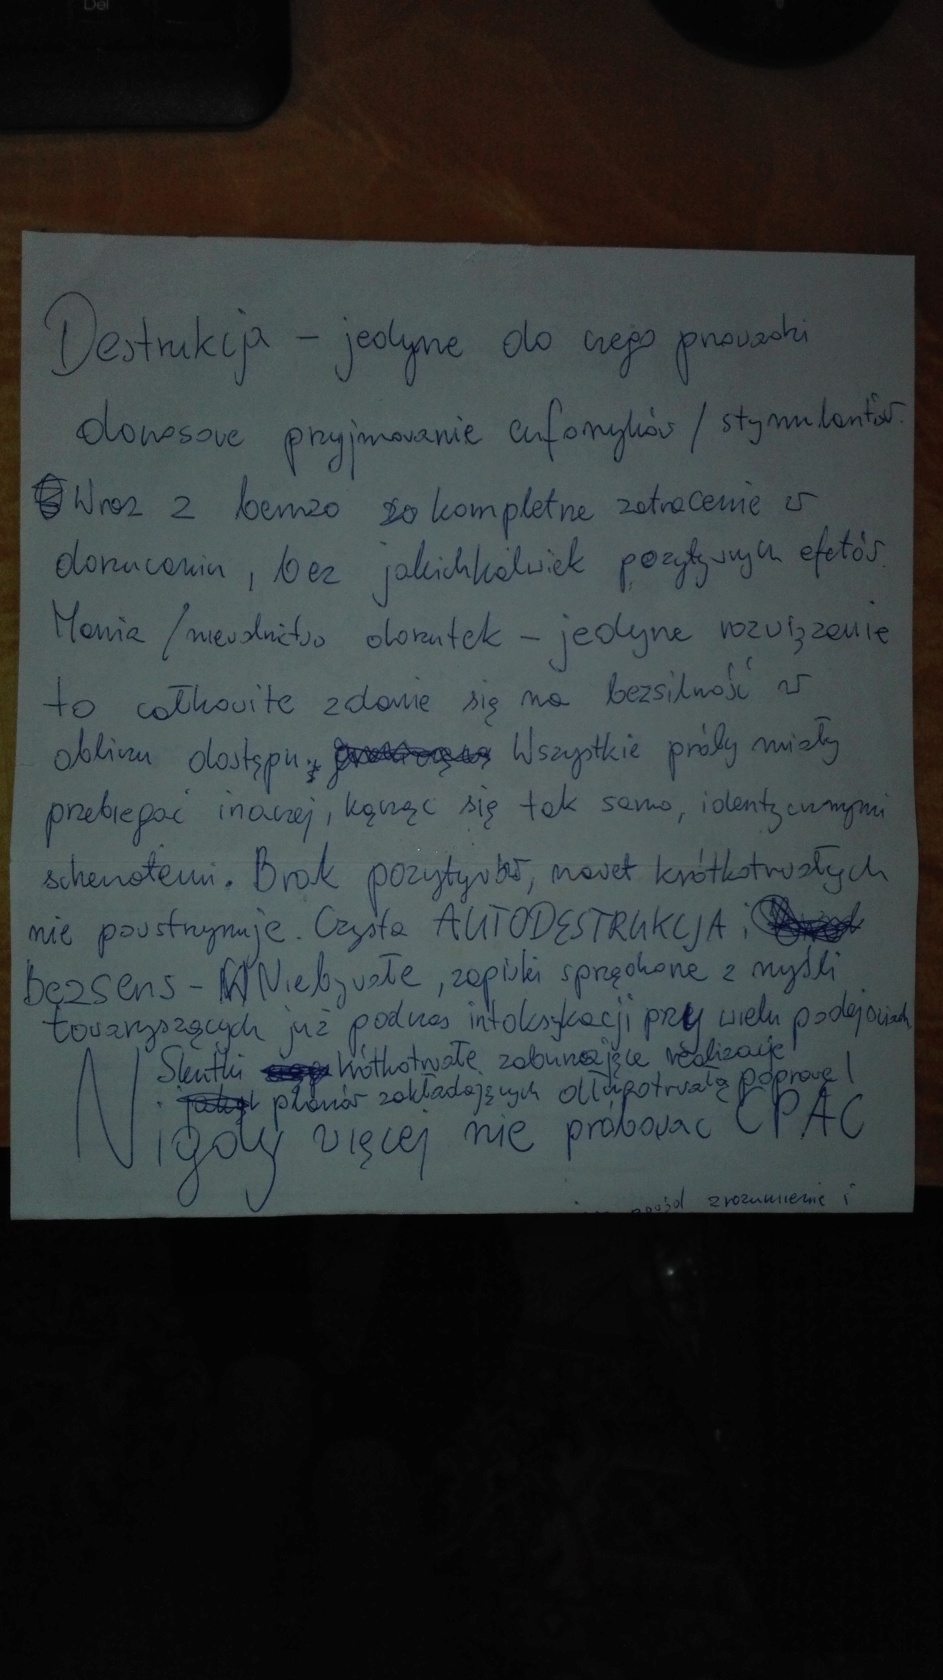 Del
Destrukcja – jedyne do czego prowadzi
donosowe przyjmowanie eufonyków / stymulantów.
Wraz z benzo kompletne zatracenie w
dorzucaniu, bez jakichkolwiek pozytywnych efetów.
Mania / niewolnictwo dorzutek – jedyne rozwiązanie
to całkowite zdanie się na bezsilność w
obliczu dostępu; Wszystkie próby miały
przebiegać inaczej, kącząc się tak samo, identycznymi
schematami. Brak pozytywów, nawet krótkotrwałych
nie powstrzymuje. Czysta AUTODESTRUKCJA i
bezsens – Niebywałe, zapiski sprzężone z myśli
towarzyszących już podczas intoksykacji przy wielu podejściach
Skutki krótkotrwałe zaburzające realizację
planów zakładających długotrwałą poprawę!
Nigdy więcej nie próbować ĆPAĆ
zrozumienie i